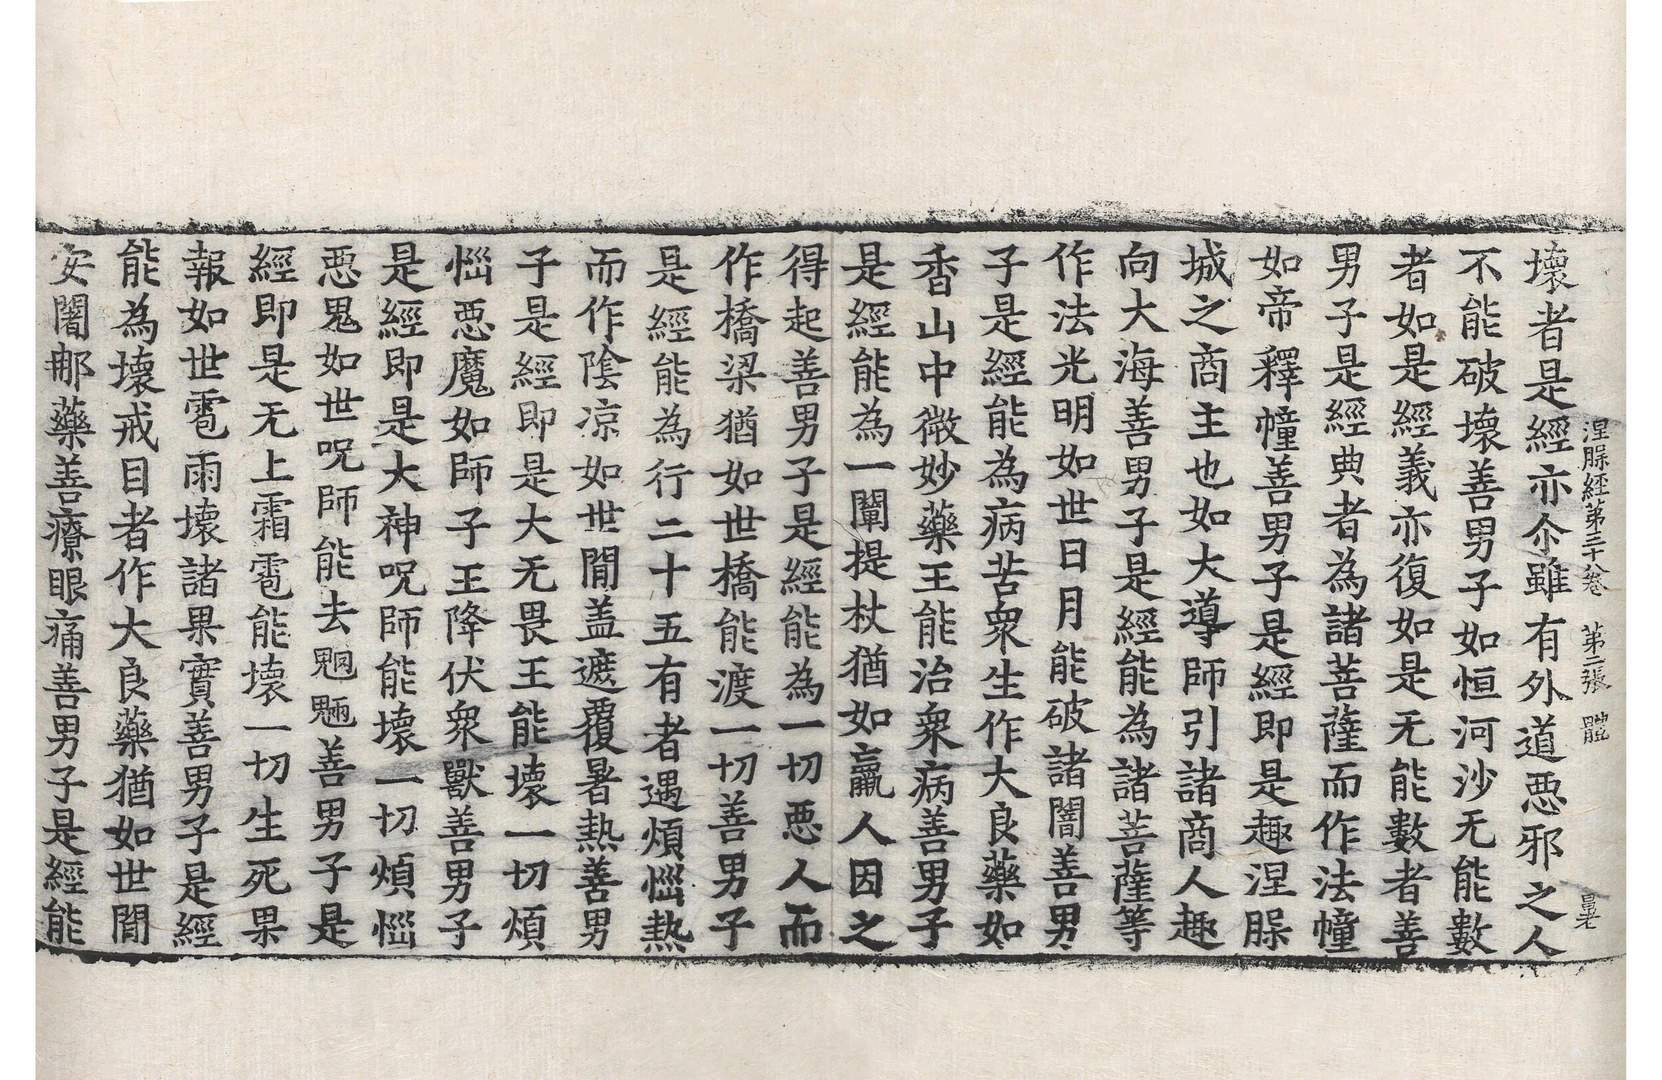 涅槃經第三十八卷 第二張 體
壞者是經亦尒雖有外道惡邪之人
不能破壞善男子如恒河沙无能數
者如是經義亦復如是无能數者善
男子是經典者為諸菩薩而作法幢
如帝釋幢善男子是經即是趣涅槃
城之商主也如大導師引諸商人趣
向大海善男子是經能為諸菩薩等
作法光明如世日月能破諸闇善男
子是經能為病苦衆生作大良藥如
香山中微妙藥王能治衆病善男子
是經能為一闡提杖猶如羸人因之
得起善男子是經能為一切惡人而
作橋梁猶如世橋能渡一切善男子
是經能為行二十五有者遇煩惱熱
而作陰凉如世閒盖遮覆暑熱善男
子是經即是大无畏王能壞一切煩
惱惡魔如師子王降伏衆獸善男子
是經即是大神呪師能壞一切煩惱
惡鬼如世呪師能去魍魎善男子是
經即是无上霜雹能壞一切生死果
報如世雹雨壞諸果實善男子是經
能為壞戒目者作大良藥猶如世閒
安闍那藥善療眼痛善男子是經能